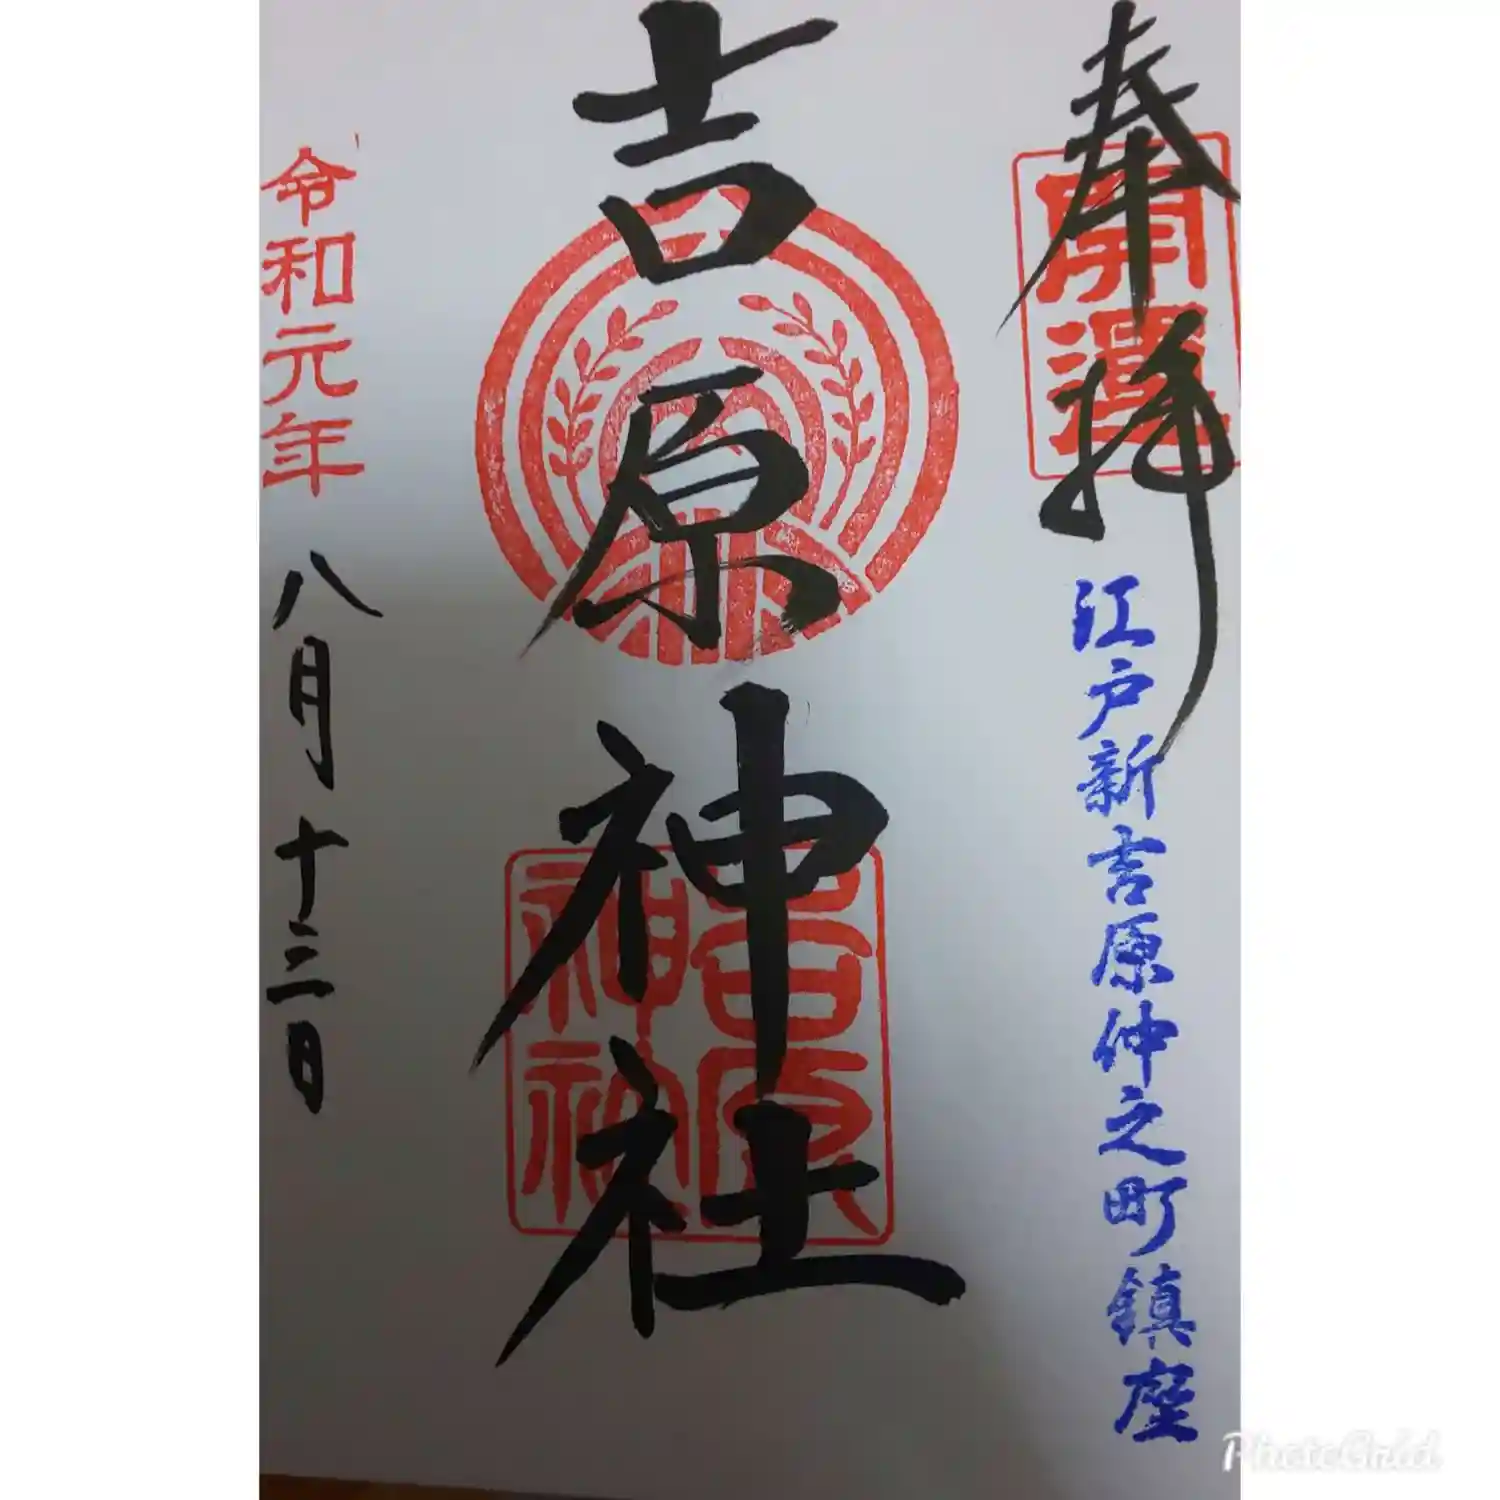 奉拝
開運
江戸新吉原仲之町鎮座
吉原神社
吉原神社
令和元年
八月十三日
PhotoGrid